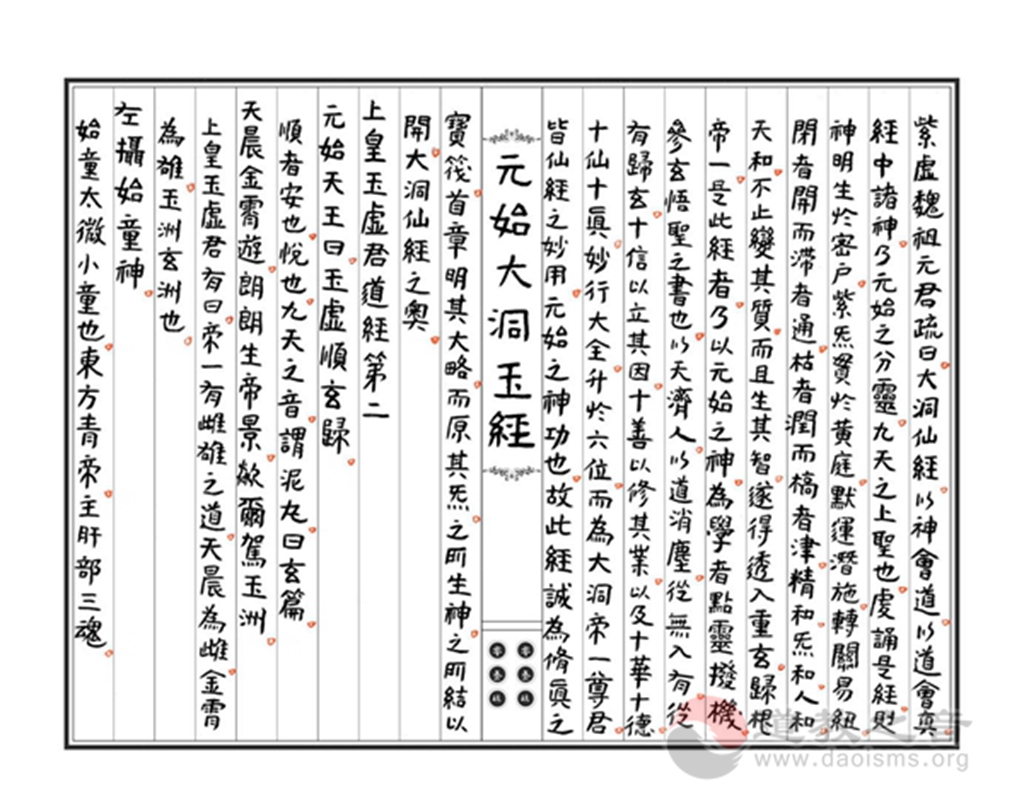 紫虛魏祖元君疏曰大洞仙經以神會道以道會真
經中諸神乃元始之分靈九天之上聖也虔誦是經則
神明生於密戶紫炁貫於黃庭默運潛施轉關易紐
閉者開而滯者通枯者潤而槁者津精和炁和人和
天和不止變其質而且生其智遂得透入重玄歸根
帝一是此經者乃以元始之神為學者點靈撥機
參玄悟聖之書也以天濟人以道消塵從無入有從
有歸玄十信以立其因十善以修其業以及十華十德
十仙十真妙行大全升於六位而為大洞帝一尊君
皆仙經之妙用元始之神功也故此經誠為脩真之
元始大洞玉經
寶筏首章明其大略而原其炁之所生神之所結以
開大洞仙經之奧
上皇玉虛君道經第二
元始天王曰玉虛順玄歸
順者安也悅也九天之音謂泥丸曰玄篇
天晨金霄遊朗朗生帝景歘爾駕玉洲
上皇玉虛君有曰帝一有雌雄之道天晨為雌金霄
為雄玉洲玄洲也
左攝始童神
始童太微小童也東方青帝主肝部三魂
道教之音
www.daoisms.org